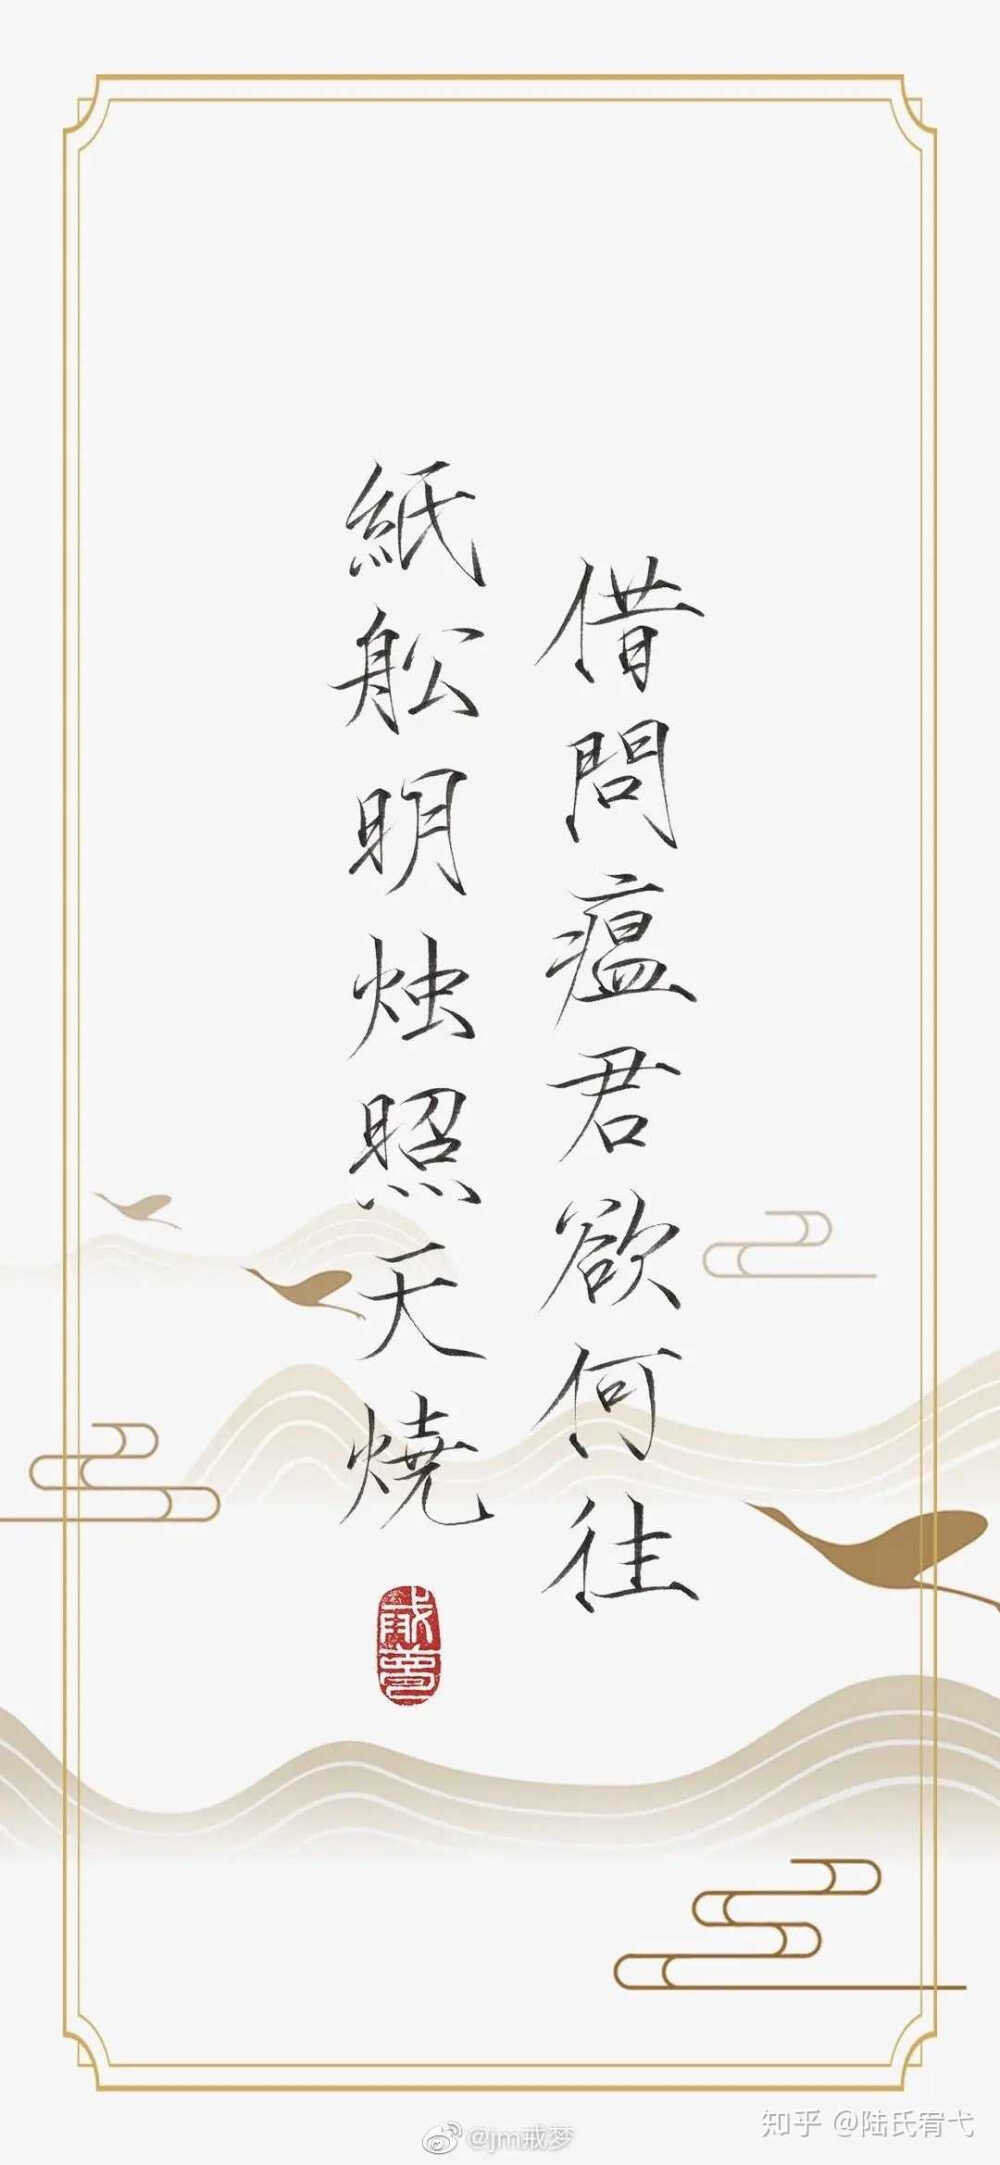 借問瘟君欲何往
紙舩明烛照天燒
戒夢
知乎 @陆氏宥弋
@jm戒梦